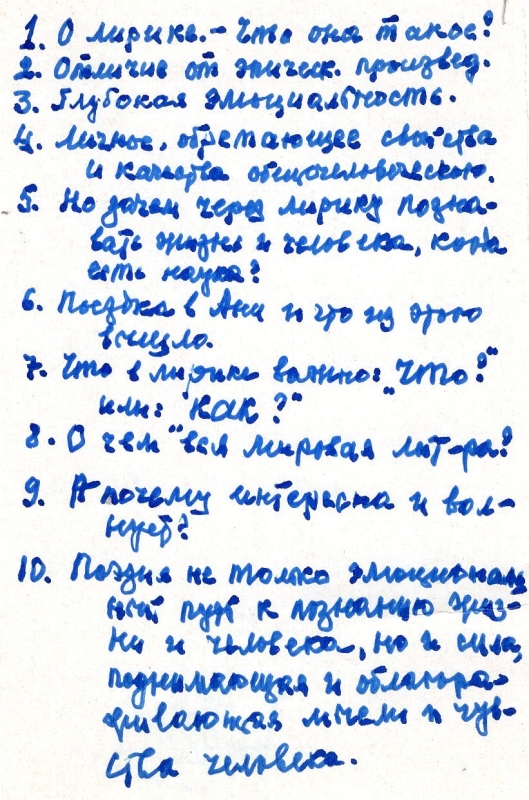 1. О лирике. – Что она такое?
2. Отличие от эпическ. произвед.
3. Глубокая эмоциальность.
4. Личное, обретающее свойства
и качества общечеловеческого.
5. Но зачем через лирику позна-
вать жизнь и человека, когда
есть наука?
6. Поездка в Ани и что из этого
вышло.
7. Что в лирике важно: „Что?"
или: "Как?"
8. О чем вся мировая лит-ра?
9. А почему интересна и вол-
нует?
10. Поэзия не только эмоциональ
ный путь к познанию жиз-
ни и человека, но и сила,
поднимающая и облагора-
живающая мысли и чув-
ства человека.